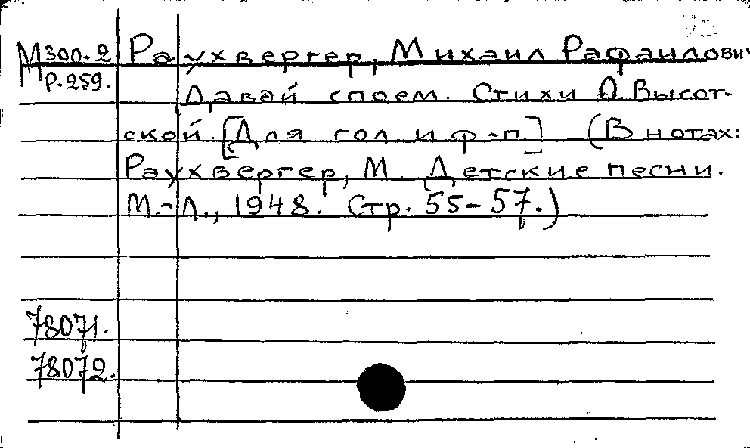 М390-2 Раухвергер, Михаил Рафаилович
Р.259.
Давай споем. Стихи О. Высот-
ской. [Для гол и ф-п] (В нотах:
Раухвергер, М. Детские песни.
М.-Л., 1948. Стр. 55-57.)
78071.
78072.